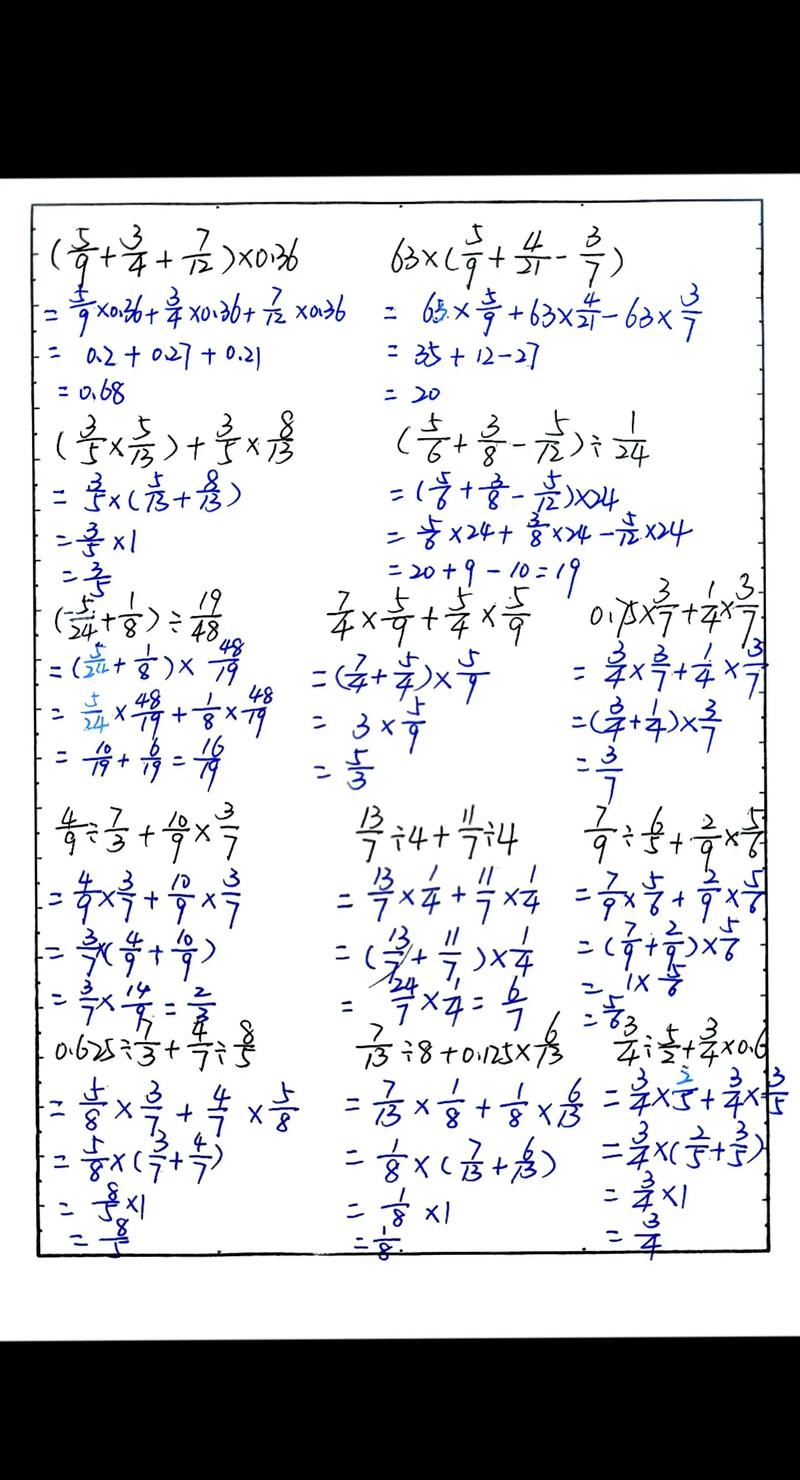 (5/9+3/4+7/12)×0.36
=5/9×0.36+3/4×0.36+7/12×0.36
= 0.2+0.27+0.21
=0.68
63×(5/9+4/21-3/7)
= 63×5/9+63×4/21-63×3/7
= 35+12-27
= 20
(3/5×5/13)+3/5×8/13
= 3/5×(5/13+8/13)
=3/5×1
=3/5
(5/6+3/8-5/12)÷1/24
=(5/6+3/8-5/12)×24
= 5/6×24+3/8×24-5/12×24
=20+9-10=19
(5/24+1/8)÷19/48
=(5/24+1/8)×48/19
= 5/24×48/19+1/8×48/19
= 10/19+6/19=16/19
7/4×5/9+5/4×5/9
=(7/4+5/4)×5/9
= 3×5/9
= 5/3
0.75×3/7+1/4×3/7
= 3/4×3/7+1/4×3/7
=(3/4+1/4)×3/7
=3/7
4/9÷7/3+10/9×3/7
=4/9×3/7+10/9×3/7
=3/7×(4/9+10/9)
=3/7×14/9=2/3
13/7÷4+11/7÷4
= 13/7×1/4+11/7×1/4
= (13/7+11/7)×1/4
= 24/7×1/4=6/7
7/9÷6/5+2/9×5/6
=7/9×5/6+2/9×5/6
=(7/9+2/9)×5/6
= 1×5/6
=5/6
0.625÷7/3+4/7÷8/5
=5/8×3/7+4/7×5/8
=5/8×(3/7+4/7)
= 8/5×1
= 8/5
7/13÷8+0.125×6/13
= 7/13×1/8+1/8×6/13
= 1/8×(7/13+6/13)
= 1/8×1
=1/8
3/4÷5/2+3/4×0.6
=3/4×2/5+3/4×3/5
=3/4×(2/5+3/5)
= 3/4×1
= 3/4